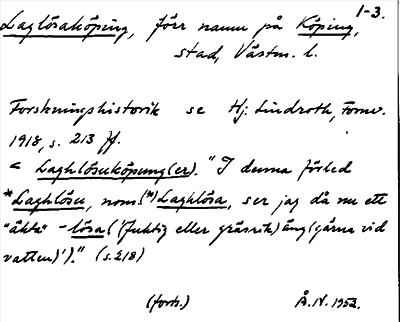 1-3.
Laglösaköping, förr namn på Köping,
stad, Västm. l.
Forskningshistorik se Hj. Lindroth, Fornv.
1918, s. 213 ff.
< Laghlösuköpung(er). "I denna förled
*Laghlösu, nom. (*)Laghlösa, ser jag då nu ett
"äkta" -lösa ('(fuktig eller gräsrik) äng (gärna vid
vatten)')." (s. 218)
(forts.) Å.N. 1952.